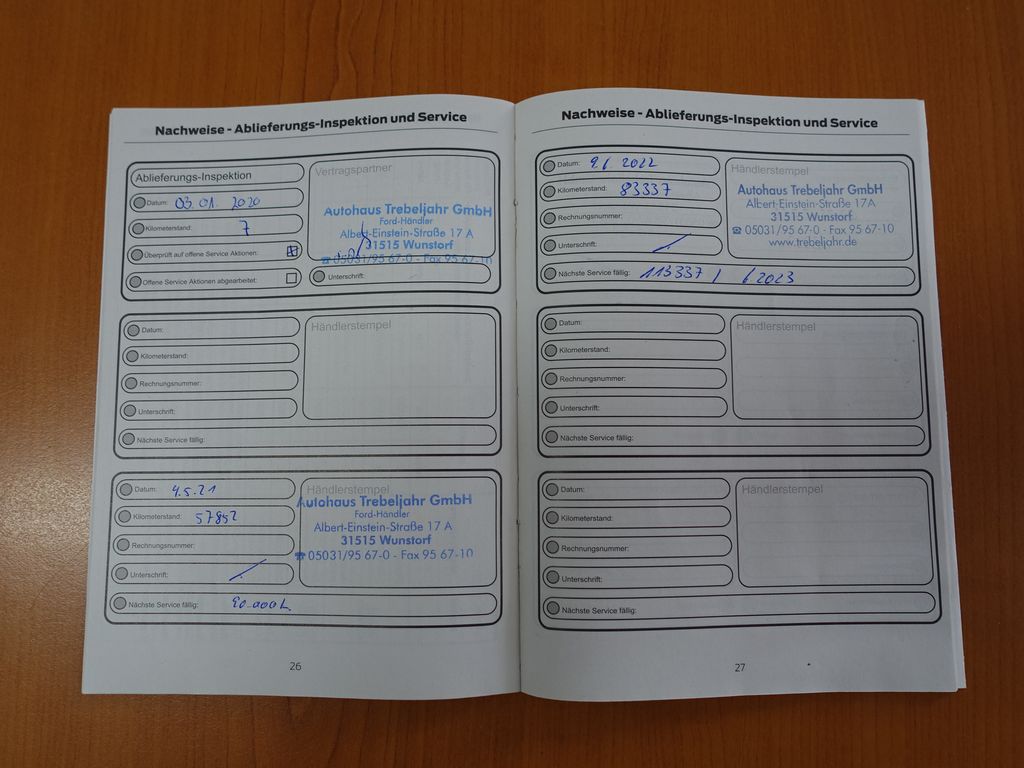 Nachweise - Ablieferungs-Inspektion und Service
Ablieferungs-Inspektion
Datum: 03.01.2020
Kilometerstand: 7
Überprüft auf offene Service Aktionen:
Offene Service Aktionen abgearbeitet:
Vertragspartner
Autohaus Trebeljahr GmbH
Ford-Händler
Albert-Einstein-Straße 17 A
31515 Wunstorf
☎ 05031/95 67-0 - Fax 95 67-10
Unterschrift:
Datum:
Kilometerstand:
Rechnungsnummer:
Unterschrift:
Nächste Service fällig:
Händlerstempel
Datum: 4.5.21
Kilometerstand: 57852
Rechnungsnummer:
Unterschrift:
Nächste Service fällig:
Händlerstempel
Autohaus Trebeljahr GmbH
Ford-Händler
Albert-Einstein-Straße 17 A
31515 Wunstorf
☎ 05031/95 67-0 - Fax 95 67-10
26
Nachweise - Ablieferungs-Inspektion und Service
Datum: 2022
Kilometerstand: 83337
Rechnungsnummer:
Unterschrift:
Nächste Service fällig: 113337 / /2023
Händlerstempel
Autohaus Trebeljahr GmbH
Albert-Einstein-Straße 17A
31515 Wunstorf
☎ 05031/95 67-0 - Fax 95 67-10
www.trebeljahr.de
Datum:
Kilometerstand:
Rechnungsnummer:
Unterschrift:
Nächste Service fällig:
Händlerstempel
Datum:
Kilometerstand:
Rechnungsnummer:
Unterschrift:
Nächste Service fällig:
Händlerstempel
27